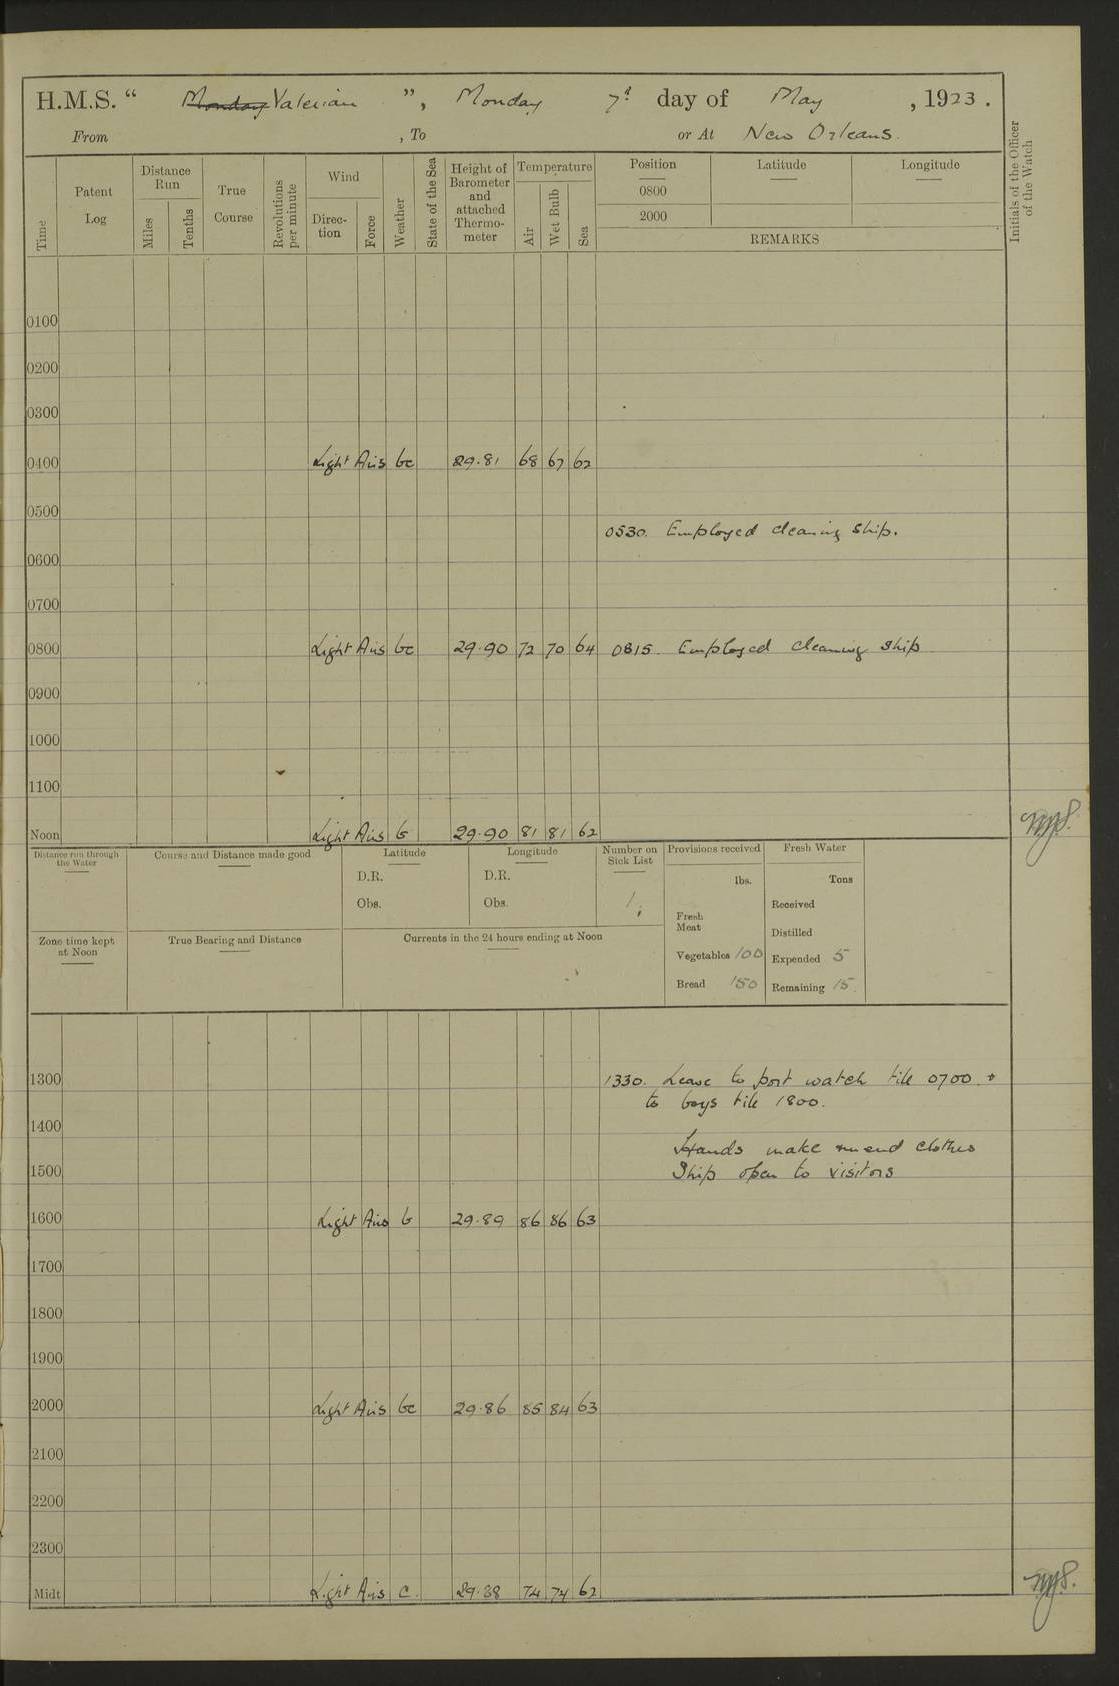 H.M.S. “ Monday Valerian ”, Monday 7th day of May , 1923 .
From , To or At New Orleans.
Time
Patent Log
Distance Run
Miles
Tenths
True Course
Revolutions per minute
Wind
Direc-tion
Force
Weather
State of the Sea
Height of Barometer and attached Thermo-meter
Temperature
Air
Wet Bulb
Sea
Position Latitude Longitude
0800
2000
REMARKS
Initials of the Officer of the Watch
0100
0200
0300
0400 Light Airs bc 29.81 68 67 62
0500
0530. Employed cleaning ship.
0600
0700
0800 Light Airs bc 29.90 72 70 64 0815. Employed cleaning ship
0900
1000
1100
Noon Light Airs b 29.90 81 81 62
Distance run through the Water
Course and Distance made good
Latitude
D.R.
Obs.
Longitude
D.R.
Obs.
Number on Sick List
1
Provisions received
lbs.
Fresh Meat
Vegetables 100
Bread 150
Fresh Water
Tons
Received
Distilled
Expended 5
Remaining 15.
Zone time kept at Noon
True Bearing and Distance
Currents in the 24 hours ending at Noon
1300 1330. Leave to port watch till 0700 +
to boys till 1800.
1400
Hands make mend clothes
1500 Ship open to visitors
1600 Light Airs b 29.89 86 86 63
1700
1800
1900
2000 Light Airs bc 29.86 85 84 63
2100
2200
2300
Midt Light Airs c. 29.88 74 74 62